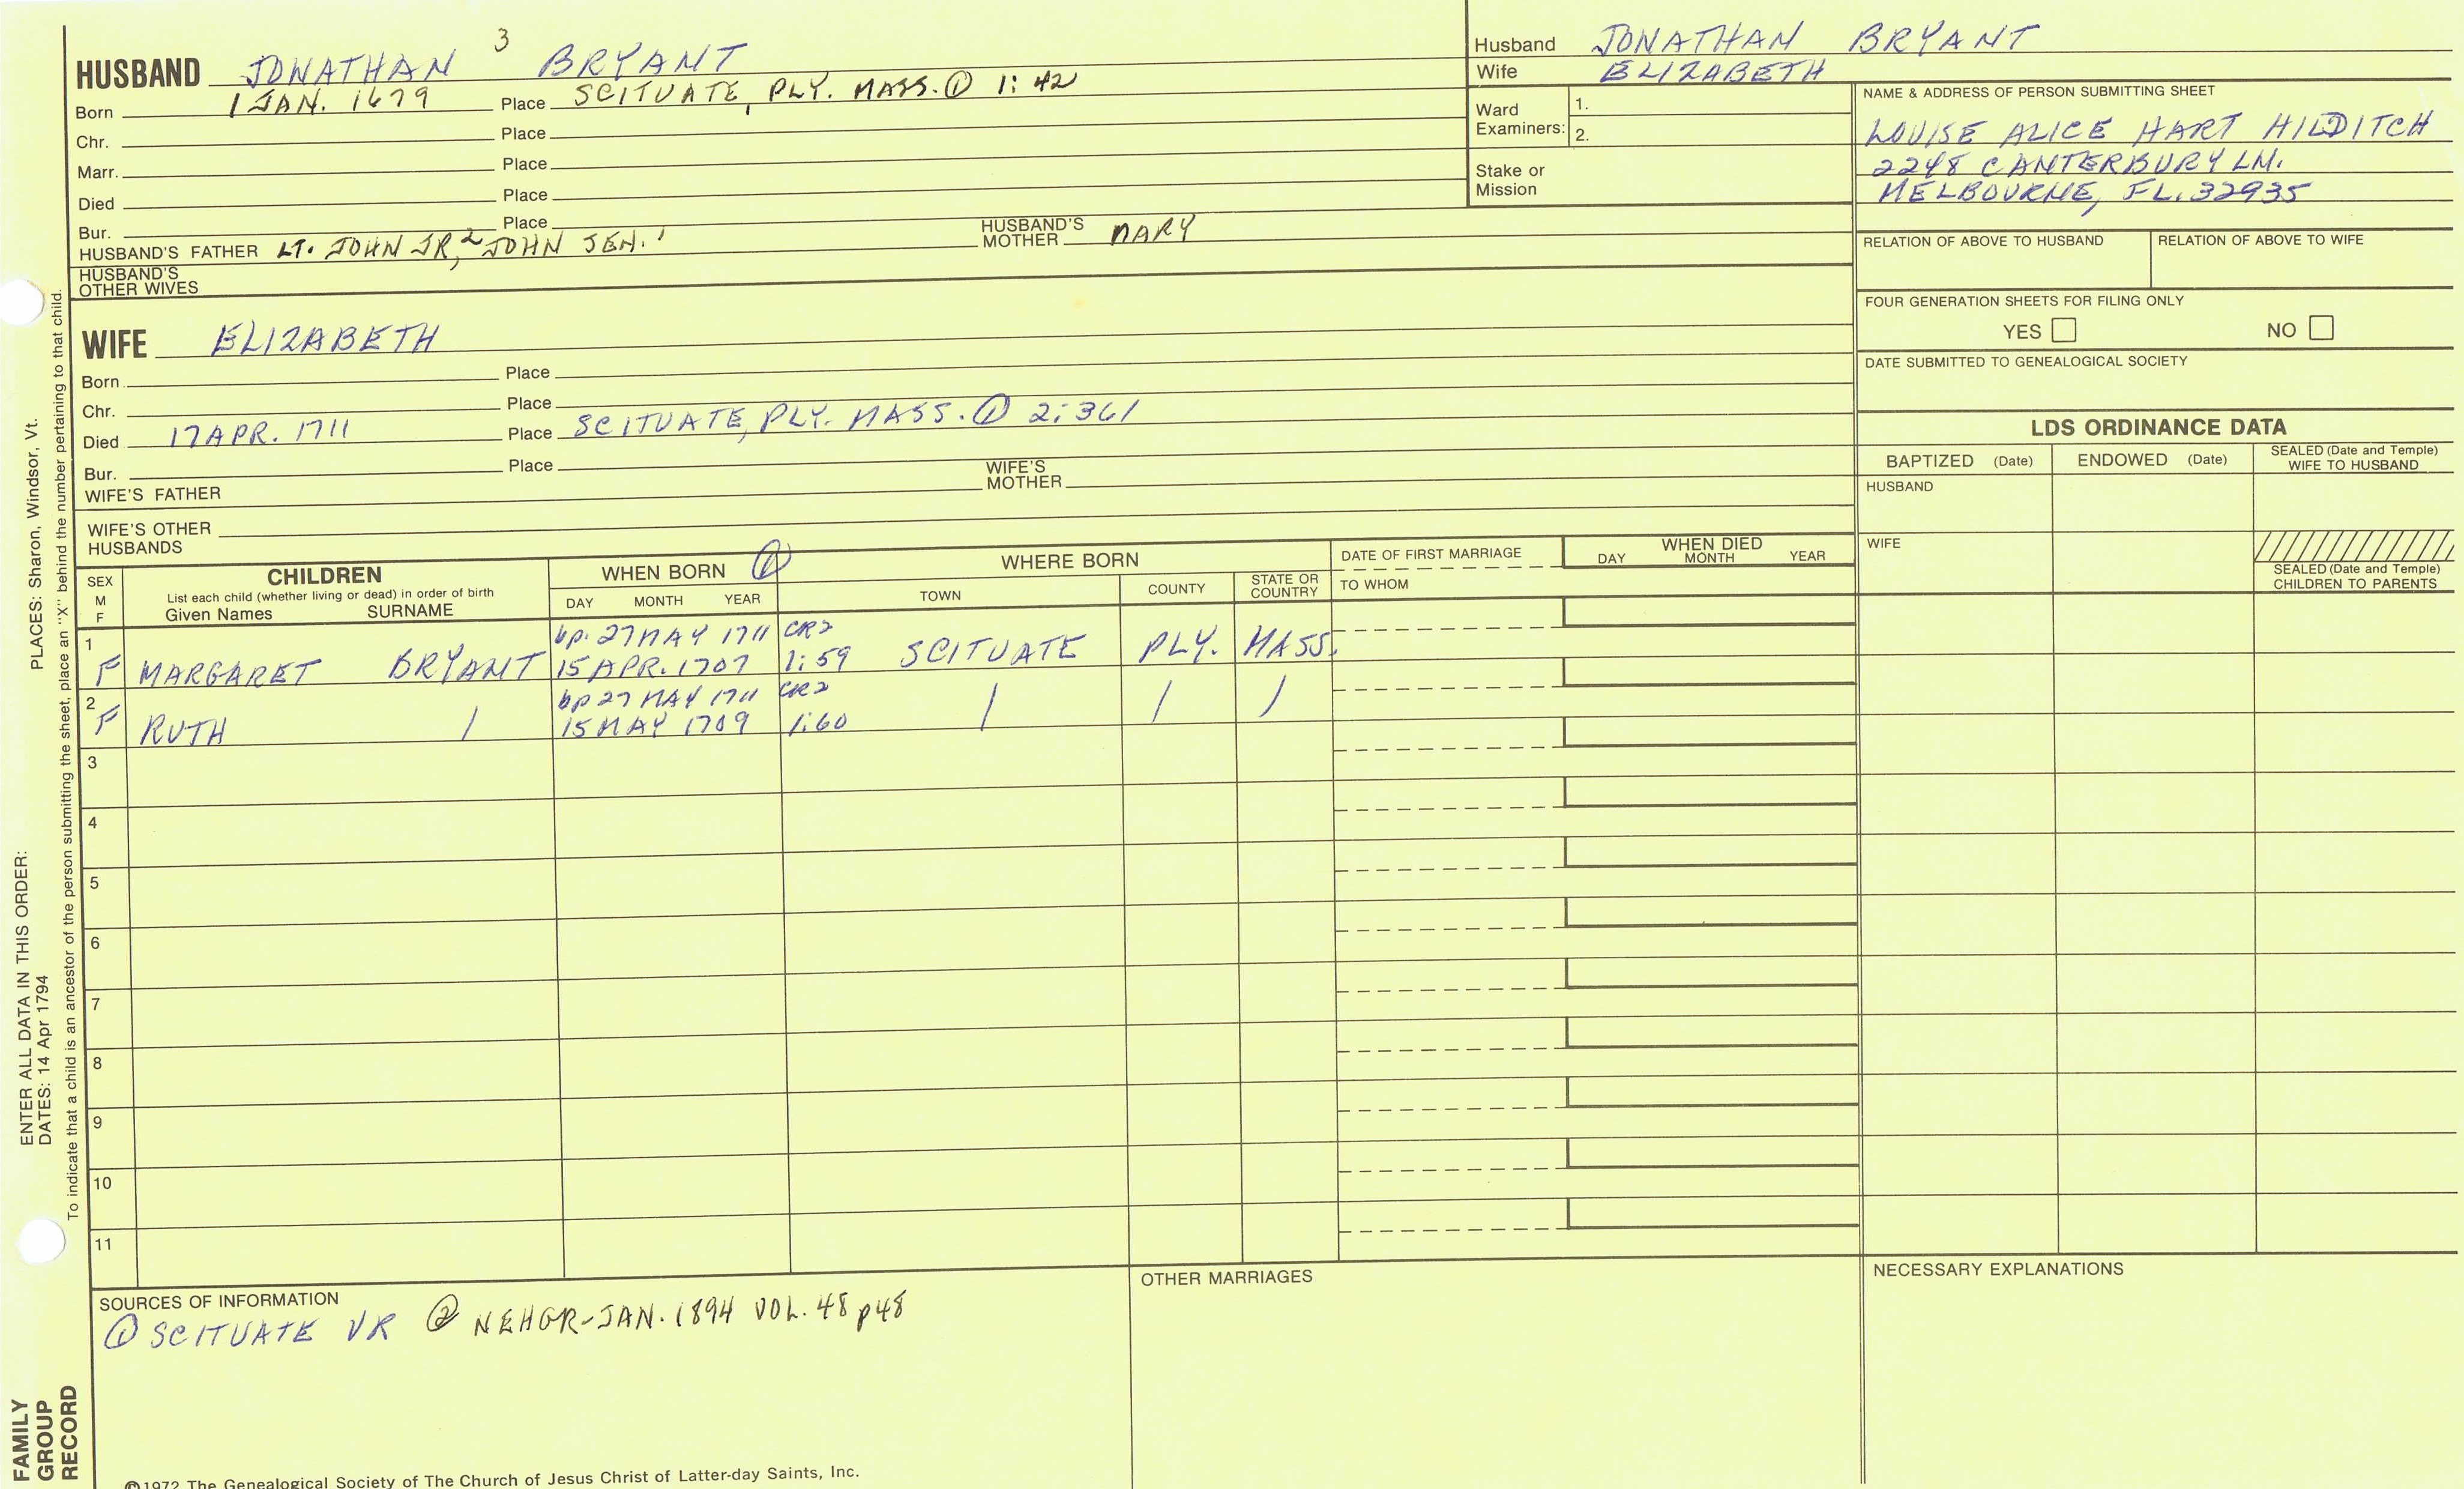 HUSBAND JONATHAN 3 BRYANT
Born 1 JAN. 1679 Place SCITUATE, PLY. MASS. ① 1:42
Chr. Place
Marr. Place
Died Place
Bur. Place
HUSBAND'S FATHER LT. JOHN JR,2 JOHN SEN.1 HUSBAND'S MOTHER MARY
HUSBAND'S
OTHER WIVES
WIFE ELIZABETH
Born Place
Chr. Place
Died 17 APR. 1711 Place SCITUATE, PLY. MASS. ① 2:361
Bur. Place
WIFE'S FATHER WIFE'S MOTHER
WIFE'S OTHER
HUSBANDS
Husband JONATHAN BRYANT
Wife ELIZABETH
Ward
Examiners: 1.
2.
Stake or
Mission
NAME & ADDRESS OF PERSON SUBMITTING SHEET
LOUISE ALICE HART HILDITCH
2248 CANTERBURY LN.
MELBOURNE, FL. 32935
RELATION OF ABOVE TO HUSBAND RELATION OF ABOVE TO WIFE
FOUR GENERATION SHEETS FOR FILING ONLY
YES NO
DATE SUBMITTED TO GENEALOGICAL SOCIETY
LDS ORDINANCE DATA
BAPTIZED (Date) ENDOWED (Date) SEALED (Date and Temple)
WIFE TO HUSBAND
HUSBAND
WIFE
SEALED (Date and Temple)
CHILDREN TO PARENTS
SEX
M
F
CHILDREN
List each child (whether living or dead) in order of birth
Given Names SURNAME
WHEN BORN ①
DAY MONTH YEAR
WHERE BORN
TOWN COUNTY STATE OR COUNTRY
DATE OF FIRST MARRIAGE
TO WHOM
WHEN DIED
DAY MONTH YEAR
1 bp. 27 MAY 1711 CR2
F MARGARET BRYANT 15 APR. 1707 1:59 SCITUATE PLY. MASS.
2 bp 27 MAY 1711 CR2
F RUTH / 15 MAY 1709 1:60 / / /
3
4
5
6
7
8
9
10
11
SOURCES OF INFORMATION
① SCITUATE VR ② NEHGR-JAN. 1894 VOL. 48 p48
OTHER MARRIAGES
NECESSARY EXPLANATIONS
©1972 The Genealogical Society of The Church of Jesus Christ of Latter-day Saints, Inc.
ENTER ALL DATA IN THIS ORDER:
DATES: 14 Apr 1794
PLACES: Sharon, Windsor, Vt.
To indicate that a child is an ancestor of the person submitting the sheet, place an "X" behind the number pertaining to that child.
FAMILY
GROUP
RECORD